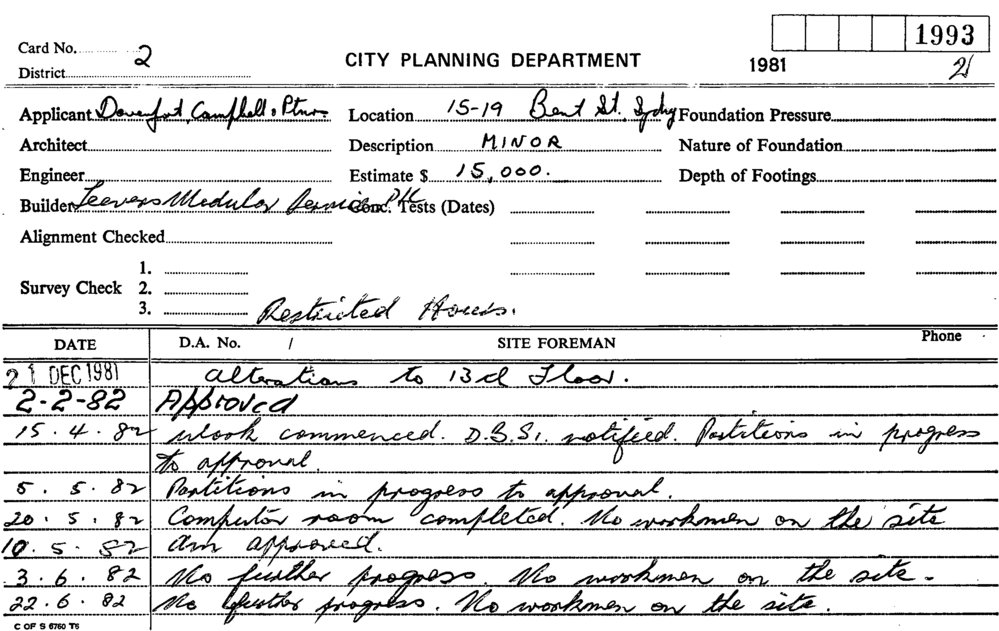 1993
Card No. 2
CITY PLANNING DEPARTMENT
1981
2
District
Applicant Davenport, Campbell & Ptnrs
Location 15-19 Bent St. Sydny
Foundation Pressure
Architect
Description MINOR
Nature of Foundation
Engineer
Estimate $ 15,000.
Depth of Footings
Builder Leevers Modular Service P/L
Conc. Tests (Dates)
Alignment Checked
Survey Check
1.
2.
3.
Restricted Hours.
DATE D.A. No. / SITE FOREMAN Phone
21 DEC 1981 Alterations to 13d Floor.
2-2-82 Approved
15.4.82 Work commenced. D.B.S. notified. Partitions in progress
to approval.
5.5.82 Partitions in progress to approval.
20.5.82 Computor room completed. No workmen on the site
10.5.82 Am approved.
3.6.82 No further progress. No workmen on the site.
22.6.82 No further progress. No workmen on the site.
C OF S 6760 T6